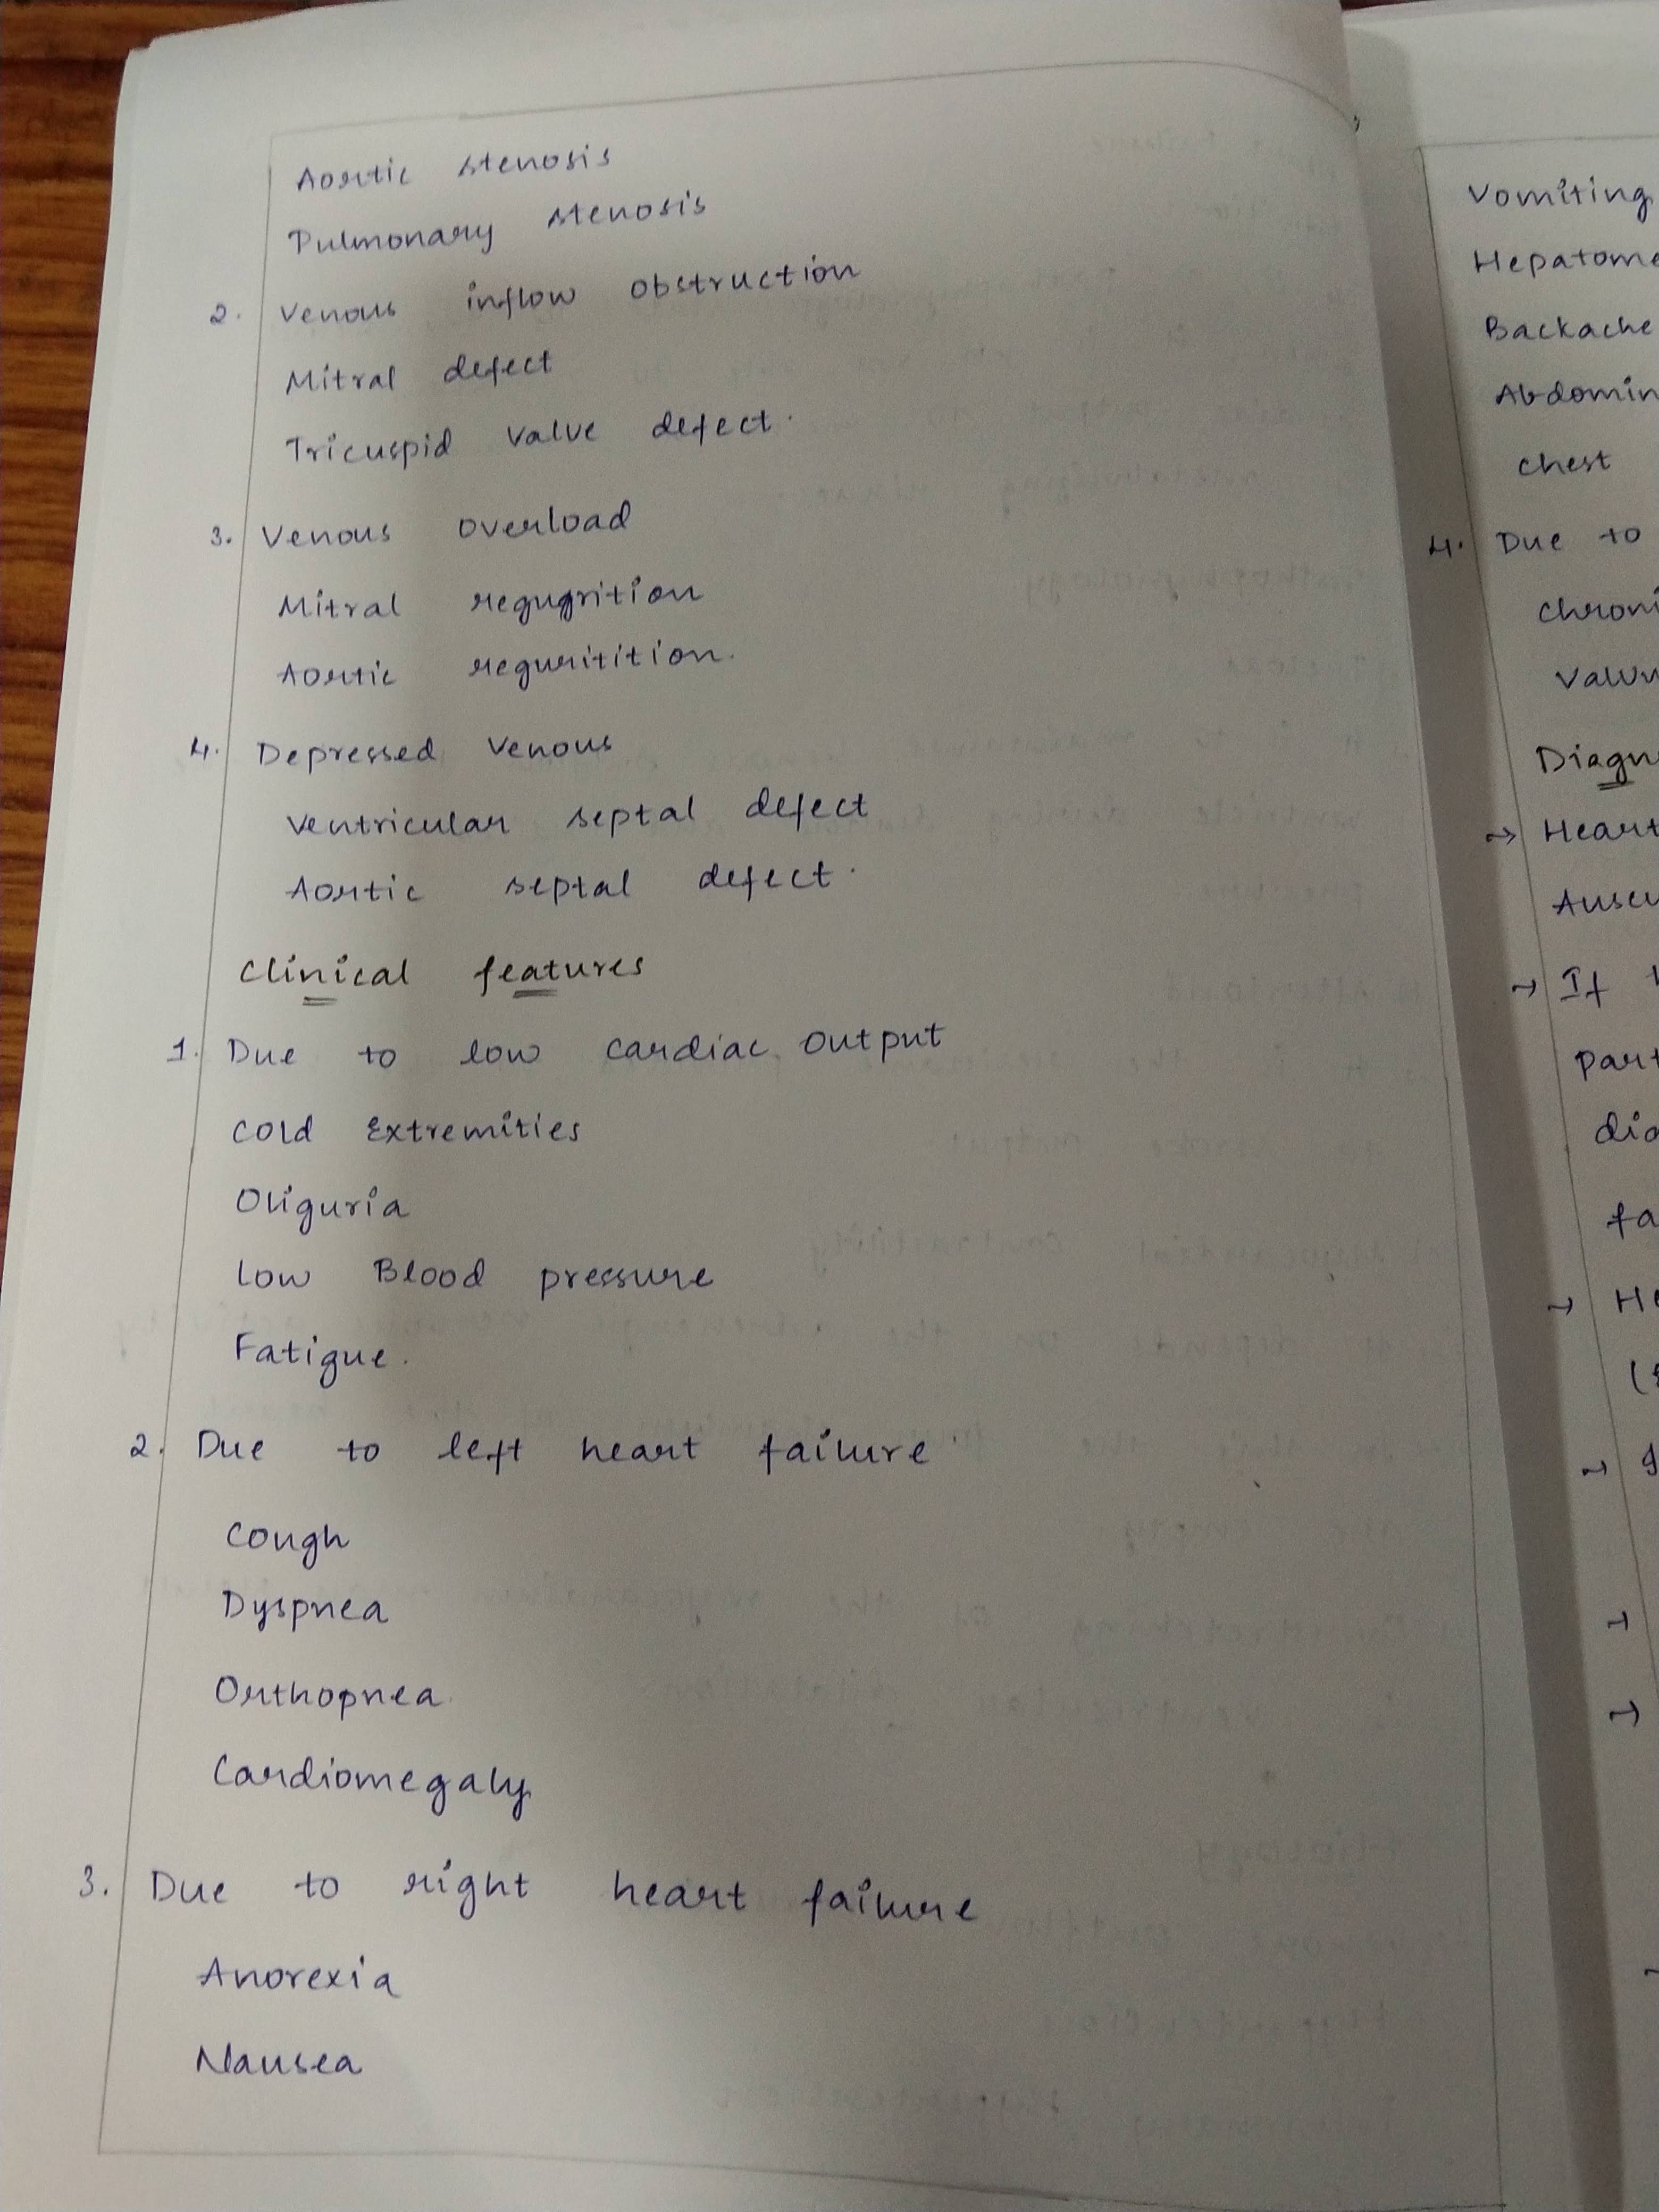 Aortic stenosis
Pulmonary stenosis
2. Venous inflow obstruction
Mitral defect
Tricuspid valve defect.
3. Venous overload
Mitral regugrition
Aortic reguritition.
4. Depressed venous
Ventricular septal defect
Aortic septal defect.
Clinical features
1. Due to low cardiac output
Cold Extremities
Oliguria
Low Blood pressure
Fatigue.
2. Due to left heart failure
Cough
Dyspnea
Orthopnea
Cardiomegaly
3. Due to right heart failure
Anorexia
Nausea
Vomiting
Hepatome
Backache
Abdomin
Chest
4. Due to
Chroni
Diagn
→ Heart
Auscu
→ If
Part
dia
fa
→ He